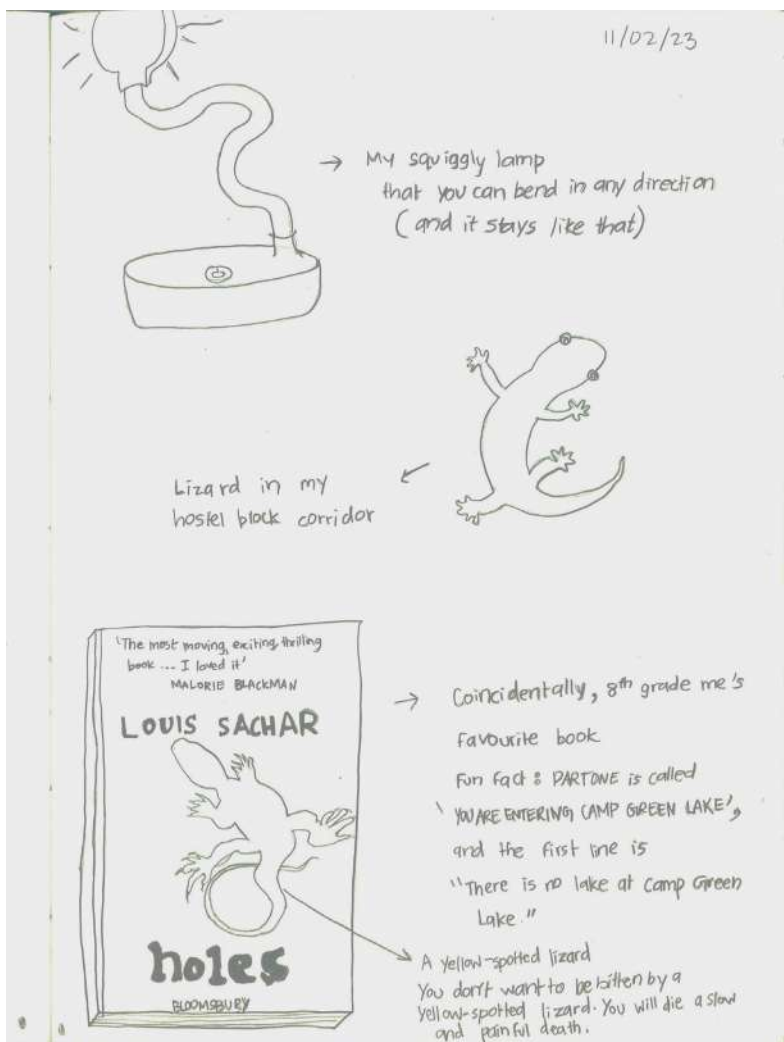 11/02/23
→ My squiggly lamp
that you can bend in any direction
(and it stays like that)
Lizard in my
hostel block corridor
'The most moving, exciting, thrilling
book ... I loved it'
MALORIE BLACKMAN
LOUIS SACHAR
holes
BLOOMSBURY
→ Coincidentally, 8th grade me's
favourite book
Fun fact : PART ONE is called
'YOU ARE ENTERING CAMP GREEN LAKE',
and the first line is
"There is no lake at Camp Green
Lake."
A yellow-spotted lizard
You don't want to be bitten by a
yellow-spotted lizard. You will die a slow
and painful death.